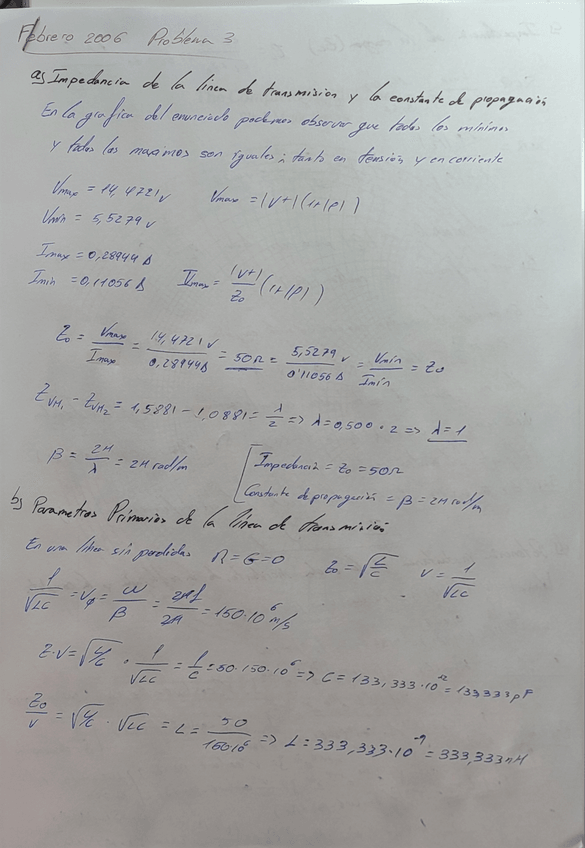 Febrero 2006 Problema 3
a) Impedancia de la linea de transmision y la constante de propagación
En la grafica del enunciado podemos observar que todos los minimos
y todos los maximos son iguales, tanto en tensión y en corriente
Vmax = 14,4721 V Vmax = |V+|(1+|ρ|)
Vmin = 5,5279 V
Imax = 0,28944 A
Imin = 0,11056 A Imax = |V+|/Z0 (1+|ρ|)
Z0 = Vmax/Imax = 14,4721 V/0,28944 A = 50 Ω = 5,5279 V/0,11056 A = Vmin/Imin = Z0
ZVM1 - ZVM2 = 1,5881 - 1,0881 = λ/2 => λ = 0,500 · 2 => λ = 1
β = 2π/λ = 2π rad/m
Impedancia = Z0 = 50 Ω
Constante de propagación = β = 2π rad/m
b) Parametros Primarios de la linea de transmisión
En una linea sin perdidas R = G = 0 Z0 = √(L/C) V = 1/√(LC)
1/√(LC) = Vφ = ω/β = 2πf/2π = 150·10^6 m/s
Z·V = √(L/C) · 1/√(LC) = 1/C = 50·150·10^6 => C = 133,333·10^-12 = 133333 pF
Z0/V = √(L/C) · √(LC) = L = 50/150·10^6 => L = 333,333·10^-9 = 333,333 nH